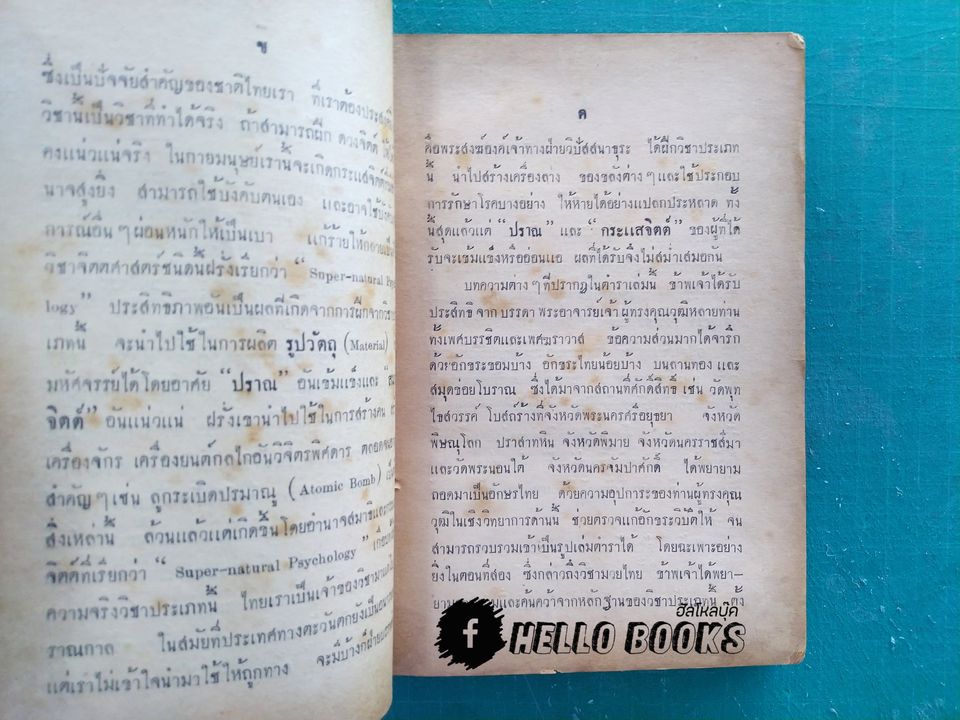 ข
ซึ่งเป็นปัจจัยสำคัญของชาติไทยเรา ที่เราต้องประสงค์
วิชานี้เป็นวิชาที่ทำได้จริง ถ้าสามารถฝึก ดวงจิตต์
คงแน่วแน่จริง ในกายมนุษย์เรานี้จะเกิดกระแสจิตต์
นาจสูงยิ่ง สามารถใช้บังคับตนเอง และอาจใช้บังคับ
การณ์อื่นๆผ่อนหนักให้เป็นเบา แก้ร้ายให้กลาย
วิชาจิตตศาสตร์ชนิดนี้ฝรั่งเรียกว่า “ Super-natural
logy” ประสิทธิภาพอันเป็นผลที่เกิดจากการฝึกจาก
เภทนี้ จะนำไปใช้ในการผลิต รูปวัตถุ (Material)
มหัศจรรย์ได้โดยอาศัย “ปราณ” อันเข้มแข็งและ
จิตต์” อันแน่วแน่ ฝรั่งเขานำไปใช้ในการสร้างคน
เครื่องจักร เครื่องยนต์กลไกอันวิจิตรพิศดาร ตลอดจน
สำคัญๆเช่น ลูกระเบิดปรมาณู (Atomic Bomb)
สิ่งเหล่านี้ ล้วนแล้วแต่เกิดขึ้นโดยอำนาจสมาธิและ
จิตต์ที่เรียกว่า “ Super-natural Psychology ”
ความจริงวิชาประเภทนี้ ไทยเราเป็นเจ้าของวิชามา
ราณกาล ในสมัยที่ประเทศทางตะวันตกยังเป็น
แต่เราไม่เข้าใจนำมาใช้ให้ถูกทาง จะมีบ้างก็ฝ่าย
ค
คือพระสงฆ์องค์เจ้าทางฝ่ายวิปัสสนาธุระ ได้ฝึกวิชาประเภท
นี้ นำไปสร้างเครื่องลาง ของขลังต่างๆและใช้ประกอบ
การรักษาโรคบางอย่าง ให้หายได้อย่างแปลกประหลาด ทั้ง
นี้สุดแล้วแต่ “ ปราณ” และ “ กระแสจิตต์” ของผู้ที่ได้
รับจะเข้มแข็งหรืออ่อนแอ ผลที่ได้รับจึงไม่สม่ำเสมอกัน
บทความต่างๆที่ปรากฏในตำราเล่มนี้ ข้าพเจ้าได้รับ
ประสิทธิ จาก บรรดา พระอาจารย์เจ้า ผู้ทรงคุณวุฒิหลายท่าน
ทั้งเพศบรรชิตและเพศฆราวาส ข้อความส่วนมากได้จารึก
ด้วยอักขระขอมบ้าง อักขระไทยน้อยบ้าง บนลานทองและ
สมุดข่อยโบราณ ซึ่งได้มาจากสถานที่ศักดิ์สิทธิ์ เช่น วัดพุท
ไธสวรรค์ โบสถ์ร้างที่จังหวัดพระนครศรีอยุธยา จังหวัด
พิษณุโลก ปราสาทหิน จังหวัดพิมาย จังหวัดนครราชสีมา
และวัดพระนอนใต้ จังหวัดนครจัมปาศักดิ์ ได้พยายาม
ถอดมาเป็นอักษรไทย ด้วยความอุปการะของท่านผู้ทรงคุณ
วุฒิในเชิงวิทยาการด้านนี้ ช่วยตรวจแก้อักขระวิบัติให้ จน
สามารถรวบรวมเข้าเป็นรูปเล่มตำราได้ โดยฉะเพาะอย่าง
ยิ่งในตอนที่สอง ซึ่งกล่าวถึงวิชามวยไทย ข้าพเจ้าได้พยา-
และค้นคว้าจากหลักฐานของวิชาประเภทนี้ ตั้ง
ฮัลโหลบุ๊ค
f HELLO BOOKS